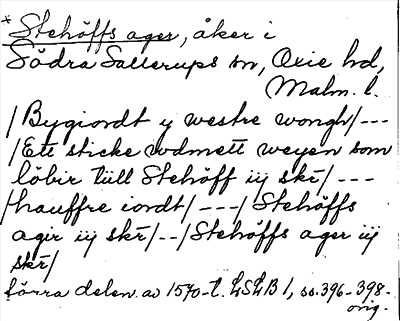 *Stehöffs ager, åker i
Södra Sallerups sn, Oxie hd,
Malm. l.
/Bygiordt y westre wongh/---
/Ett sticke wdmett weyen som
löbir tiill Stehöff iij skr/---
/hauffre iordt/---/Stehöffs
agir iij skr/--/Stehöffs ager iij
skr/
förra delen av 1570-t. LSLB 1, ss. 396-398-
orig.